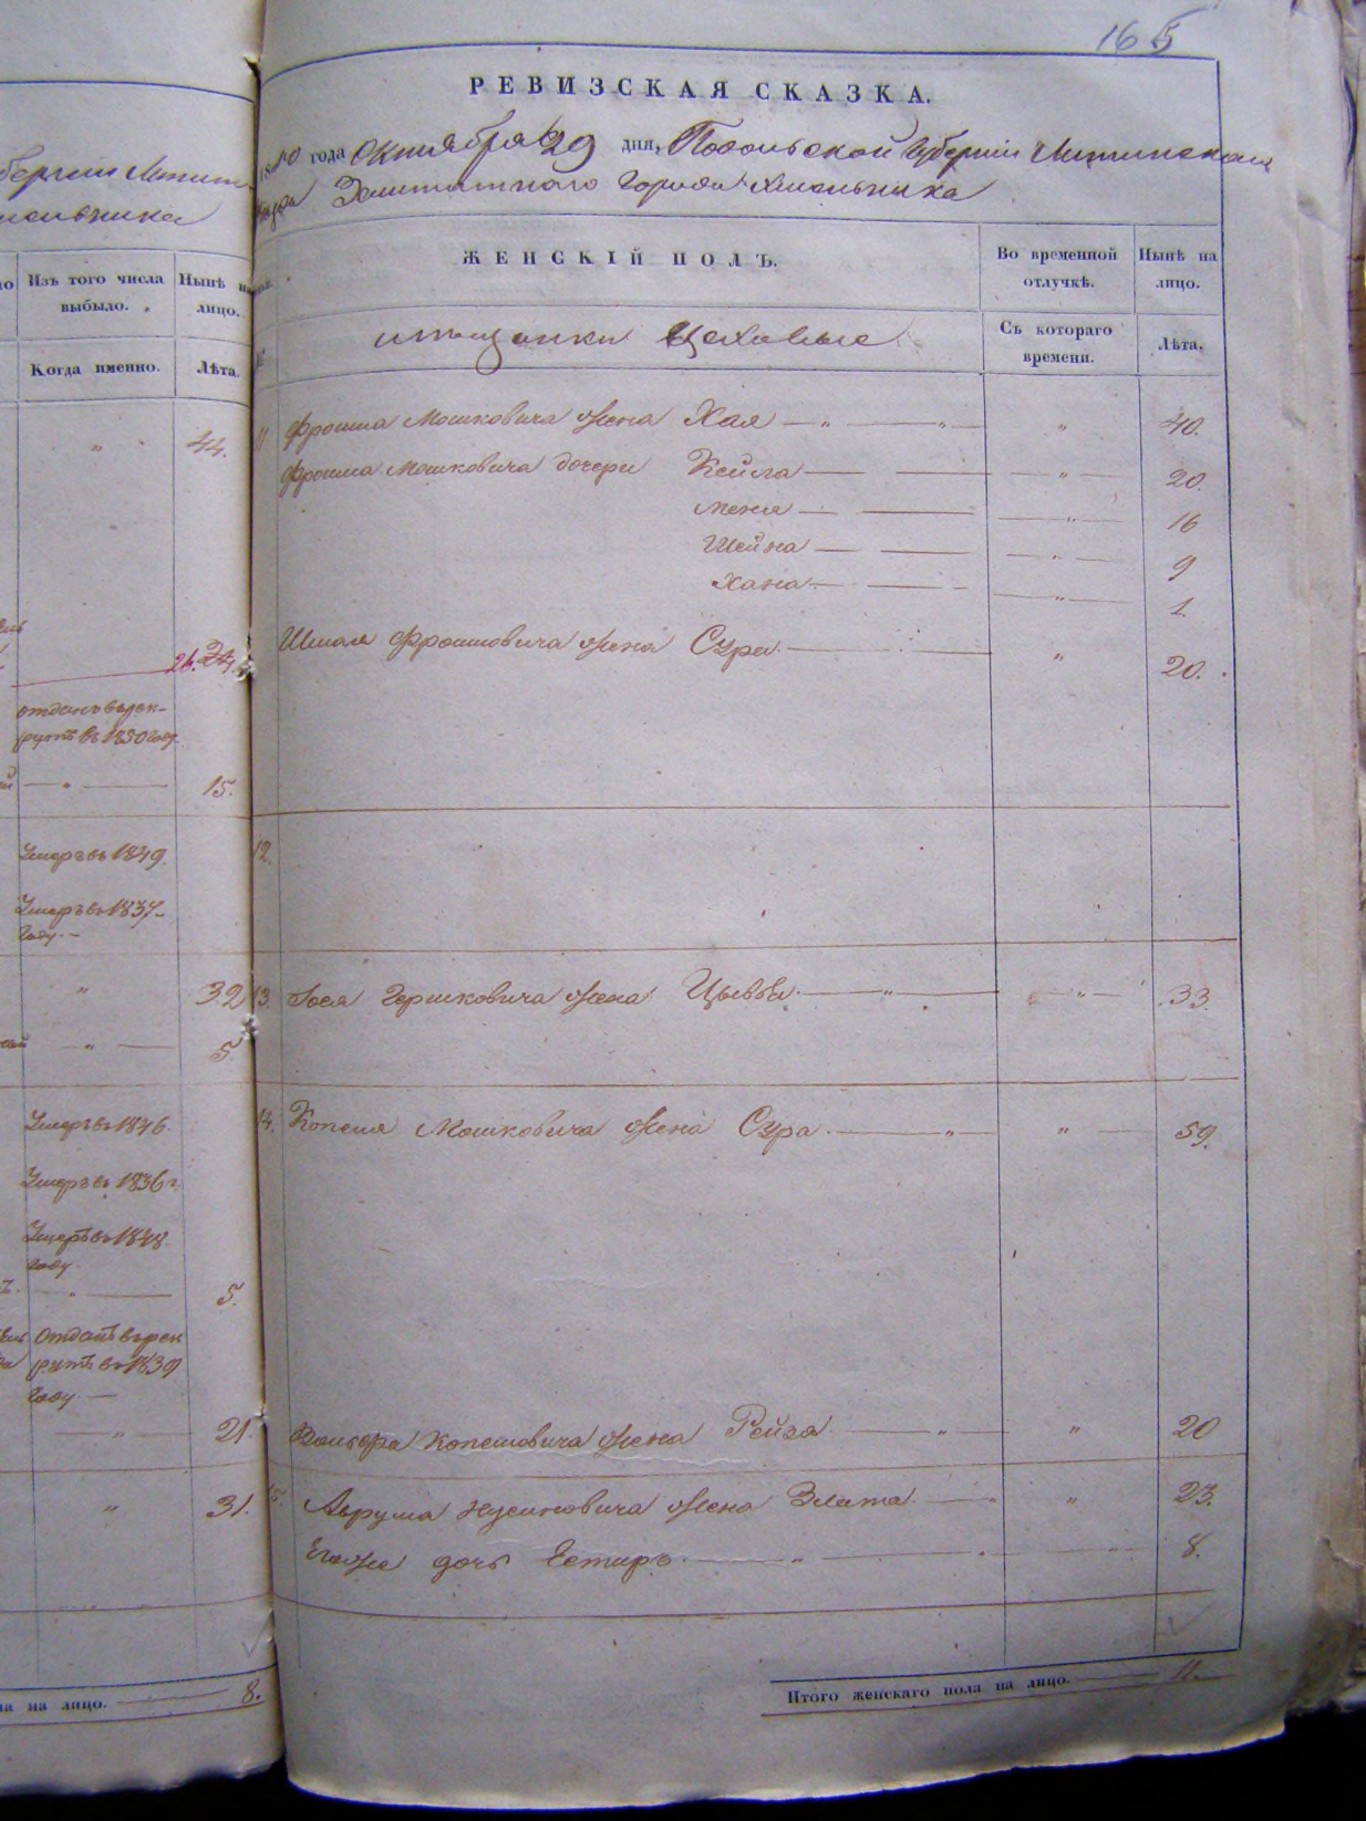 165
РЕВИЗСКАЯ СКАЗКА.
1850 года Октября 29 дня, Подольской Губерніи Литинскаго
Уѣзда Заштатнаго Города Хмельника
ЖЕНСКІЙ ПОЛЪ.
Во временной отлучкѣ.
Нынѣ на лицо.
мѣщанки Цеховые
Съ котораго времени.
Лѣта.
11 Фроима Мошковича жена Хая — „ — „ — „ 40.
Фроима Мошковича дочери Кейла — — „ — 20.
Меня — — „ — 16
Шейна — — „ — 9
Хана — — „ — 1.
Шмоля Фроимовича жена Сура — „ 20.
12.
13. Іося Гершковича жена Цывья — „ — „ — 33.
14. Копеля Мошковича жена Сура — „ — „ — 59.
Копелевича жена Рейза — „ — „ 20
15. Аврума Нусиновича жена Злата — „ 23.
Егоже дочь Естиръ — „ — 8.
Итого женскаго пола на лицо. — 11.
берніи Литин
мельника
Изъ того числа выбыло.
Нынѣ на лицо.
Когда именно.
Лѣта.
„ 44.
26. 24.
отданъ въ рек-
рутъ въ 1850 году
— „ — 15.
Умеръ въ 1849.
Умеръ въ 1837
году. —
„ 32
— „ — 5.
Умеръ въ 1846.
Умеръ въ 1836 г.
Умеръ въ 1848
году
— „ — 5.
Отданъ въ рек
рутъ въ 1839
году. —
„ — 21.
„ 31.
на лицо. — 8.